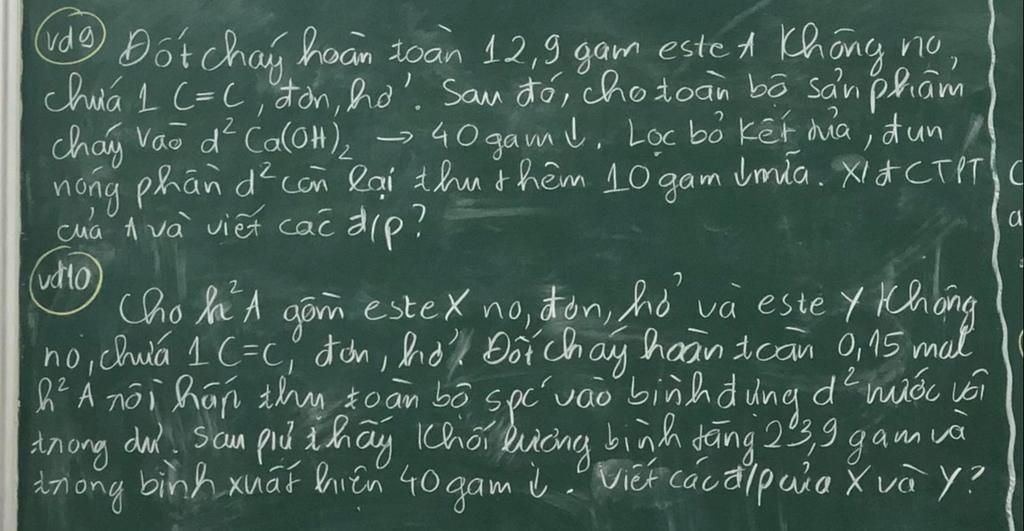 vd9 Đốt cháy hoàn toàn 12,9 gam este A không no,
chứa 1 C=C, đơn, hở. Sau đó, cho toàn bộ sản phẩm
cháy vào d² Ca(OH)₂ → 40 gam ↓. Lọc bỏ kết tủa, đun
nóng phần d² còn lại thu thêm 10 gam ↓ nữa. Xđ CTPT
của A và viết các đ/p?
vd10
Cho h² A gồm este X no, đơn, hở và este Y không
no, chứa 1 C=C, đơn, hở. Đốt cháy hoàn toàn 0,15 mol
h² A rồi hấp thụ toàn bộ spc vào bình đựng d² nước vôi
trong dư. Sau pứ thấy khối lượng bình tăng 23,9 gam và
trong bình xuất hiện 40 gam ↓. Viết các đ/p của X và Y?